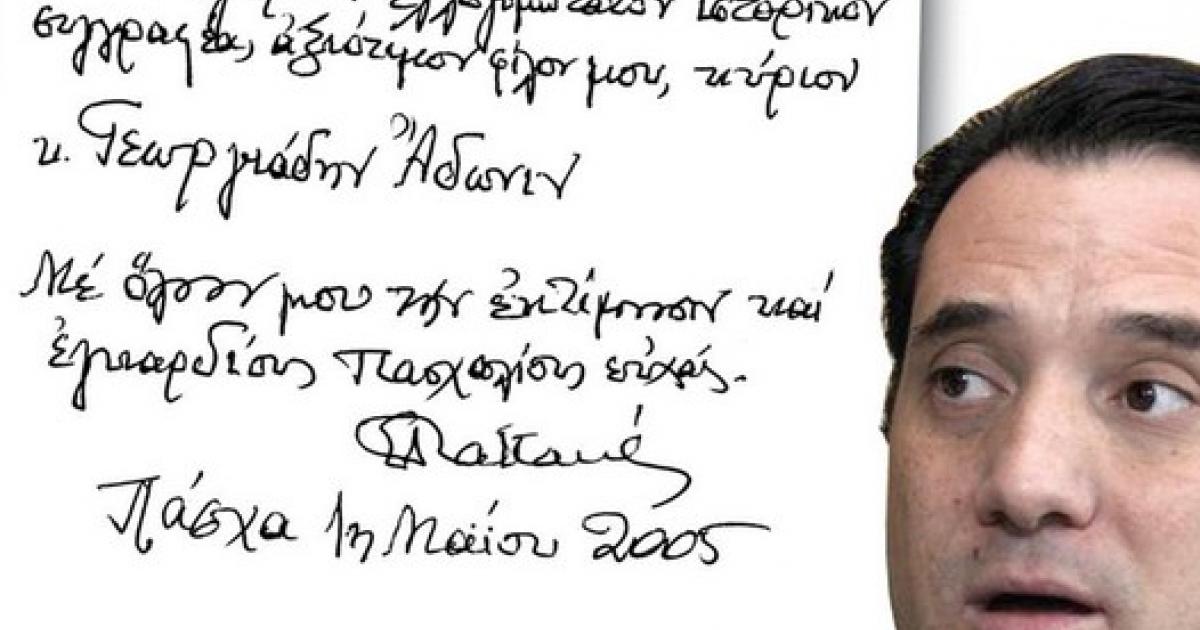 ἐλλογιμώτατον ἱστορικόν
συγγραφέα, ἀξιότιμον φίλον μου, κύριον
κ. Γεωργιάδην Ἄδωνιν
Μέ ὅλην μου τήν ἐκτίμησιν καί
ἐγκαρδίους πασχαλίους εὐχάς.
Πάσχα 1η Μαΐου 2005